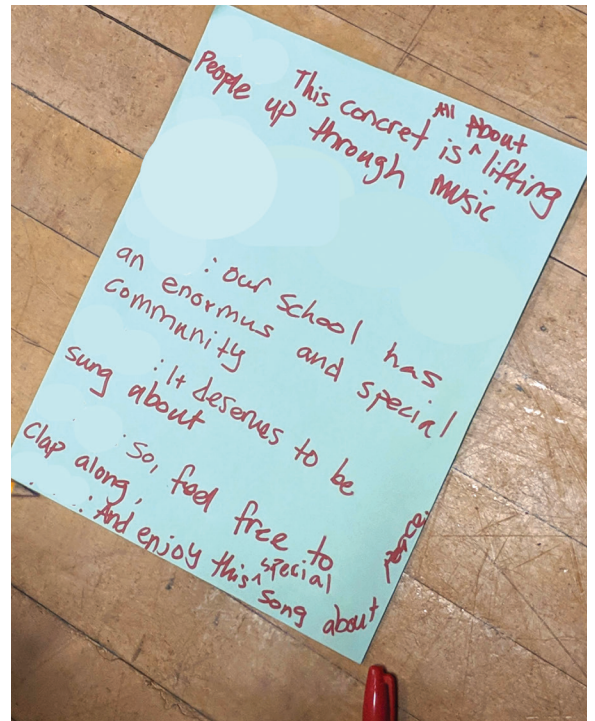 This concret is ^ All About lifting
People up through Music
: our school has
an enormus and special
community
: It deserves to be
sung about
: So, feel free to
clap along,
: And enjoy this ^ special song about peace.